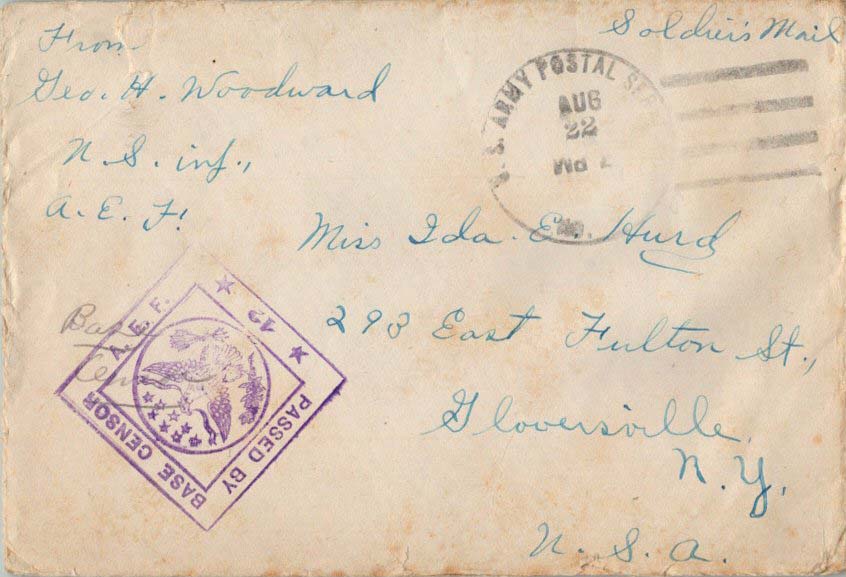 Soldier's Mail
From
Geo. H. Woodward
U. S. inf.,
A. E. F.
U. S. ARMY POSTAL SER
AUG
22
Miss Ida. E. Hurd
293 East Fulton St.,
Gloversville,
N. Y.
U. S. A.
Base
PASSED BY
BASE CENSOR
A. E. F.